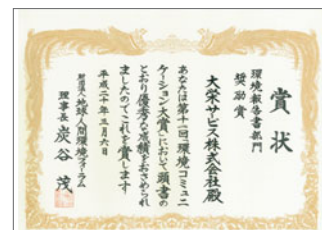 賞状
環境報告書部門
奨励賞
大栄サービス株式会社殿
あなたは第十一回「環境コミュニ
ケーション大賞」において頭書の
とおり優秀な成績をおさめられ
ましたのでこれを賞します
平成二十年三月六日
財団法人地球・人間環境フォーラム
理事長 炭谷茂